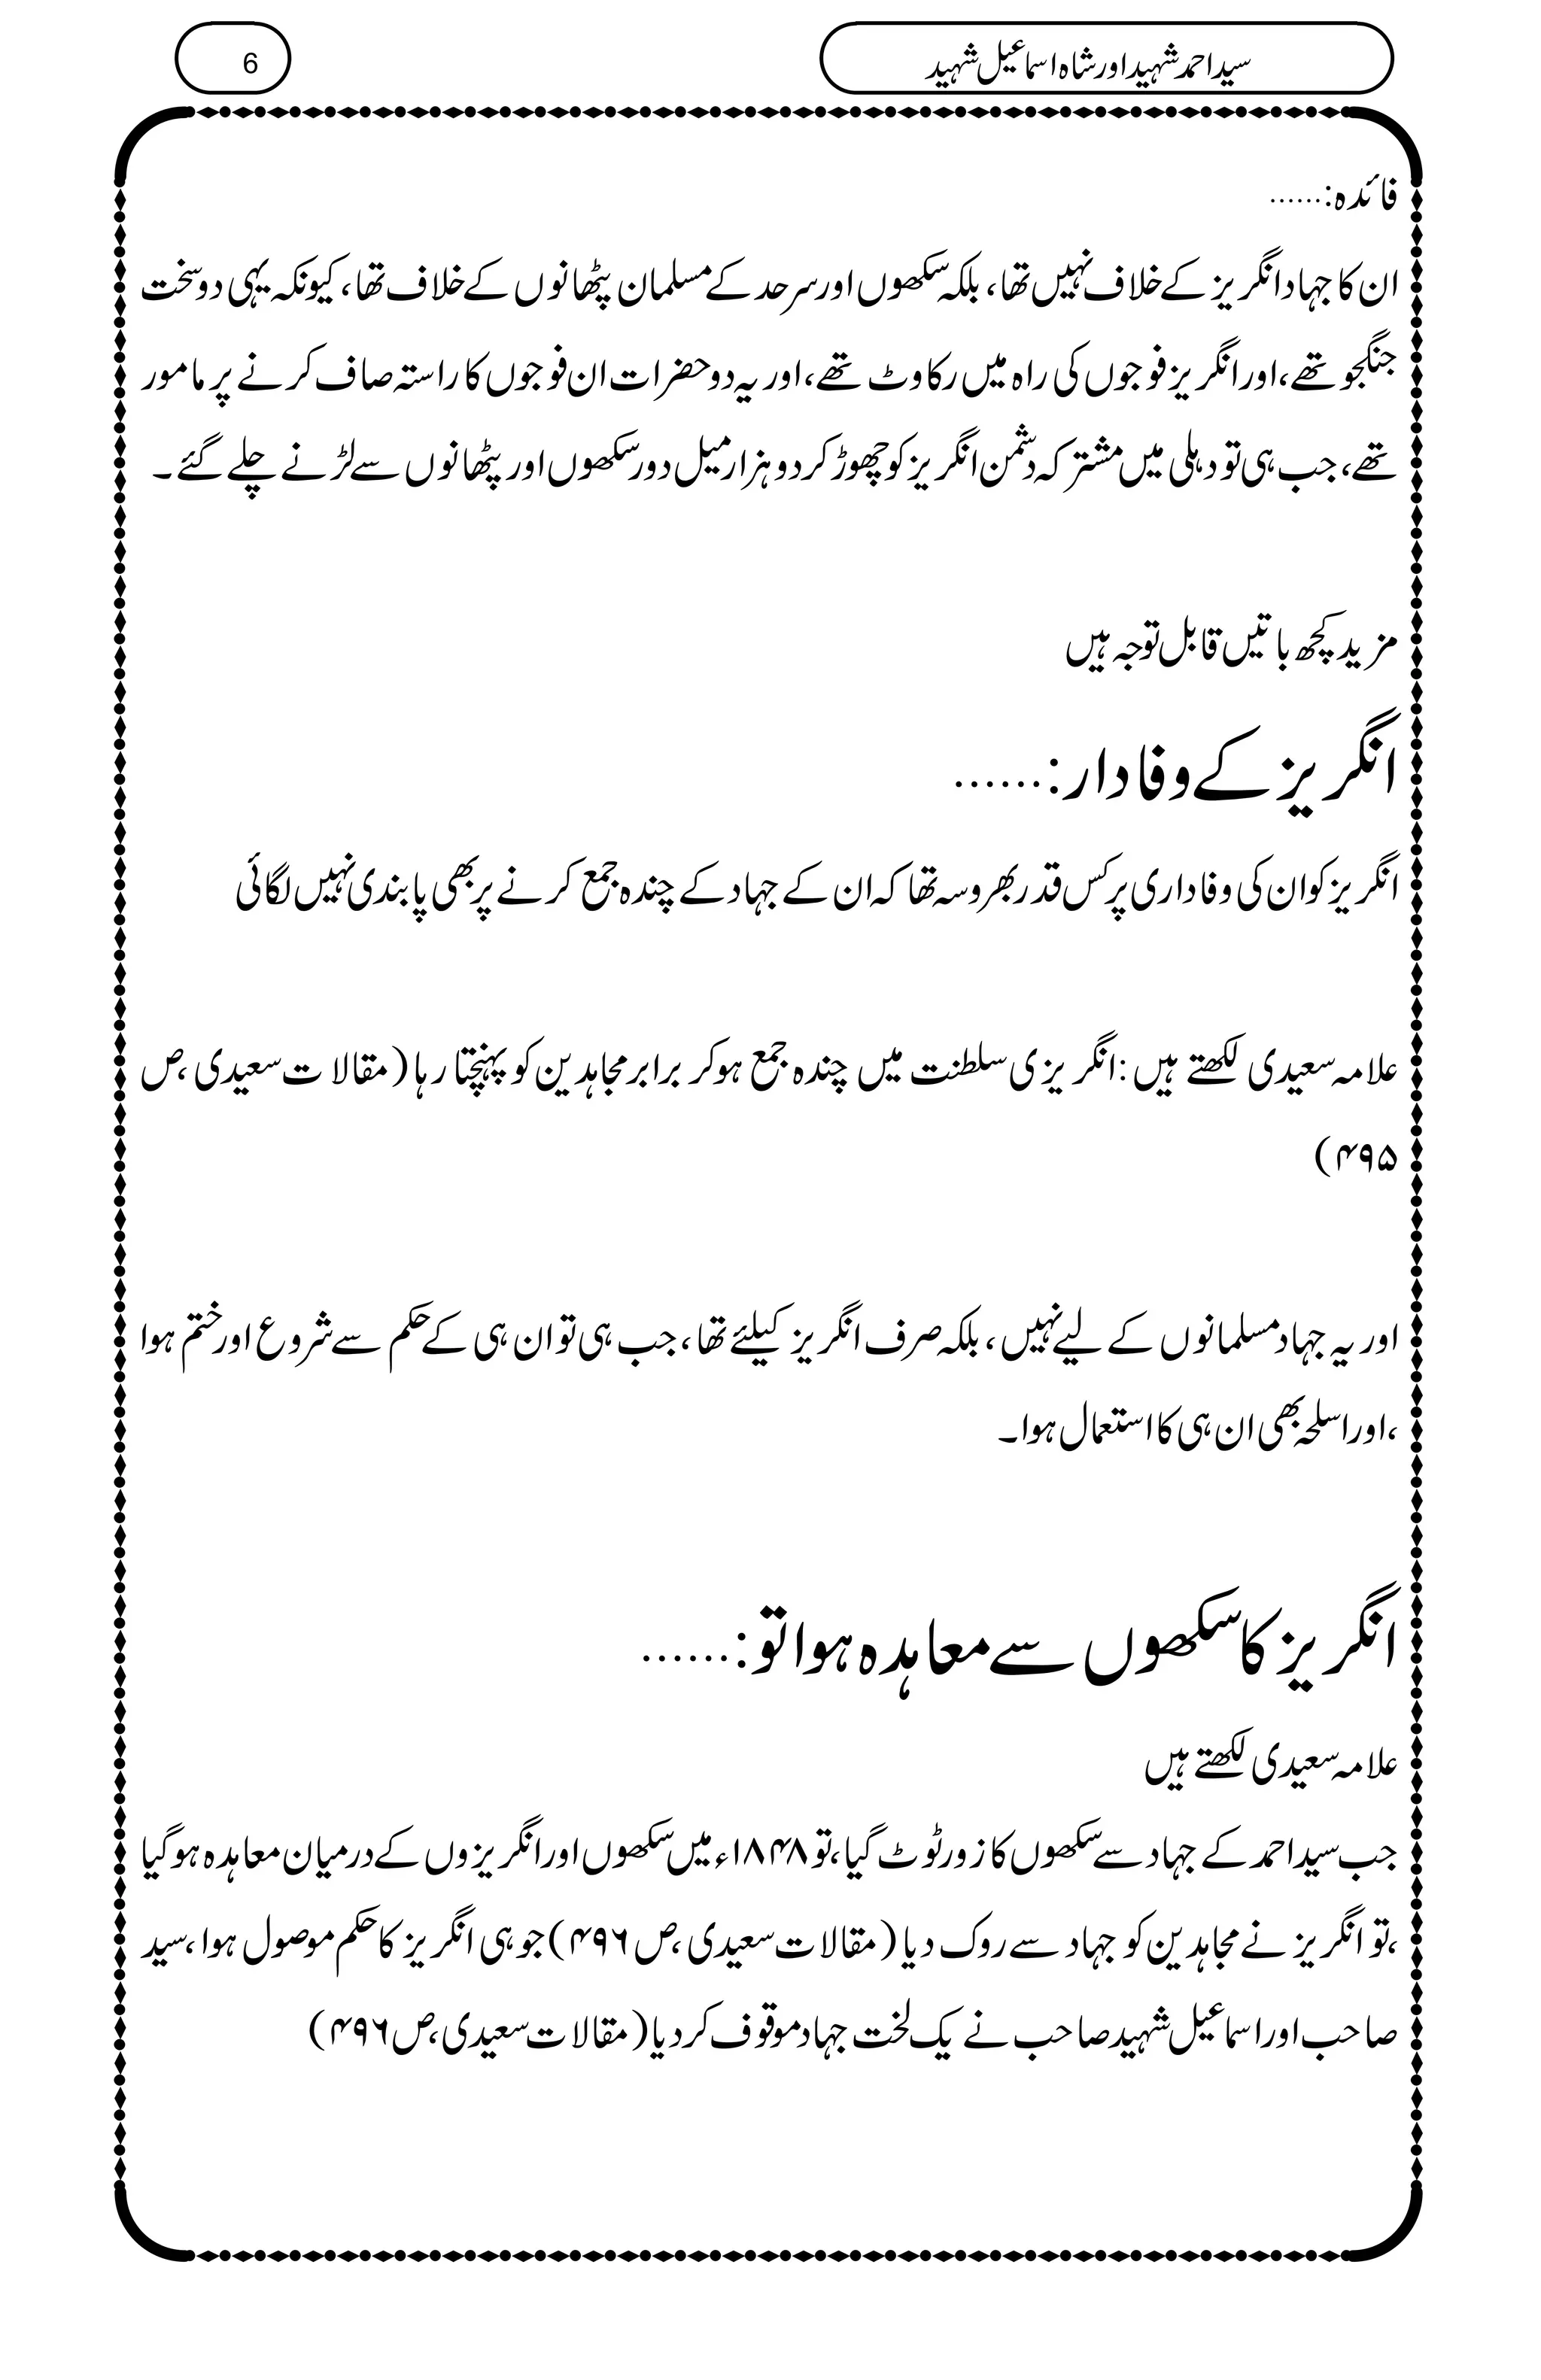 سید احمد شہید اور شاہ اسماعیل شہید
6
فائدہ:......
ان کا جہاد انگریز کے خلاف نہیں تھا، بلکہ سکھوں اور سرحد کے مسلمان پٹھانوں کے خلاف تھا، کیونکہ یہی دو سخت
جنگجو تھے، اور انگریز فوجوں کی راہ میں رکاوٹ تھے، اور یہ دو حضرات ان فوجوں کا راستہ صاف کرنے پر مامور
تھے، جب ہی تو دہلی میں مشترکہ دشمن انگریز کو چھوڑ کر دو ہزار میل دور سکھوں اور پٹھانوں سے لڑنے چلے گئے۔
مزید کچھ باتیں قابل توجہ ہیں
انگریز کے وفادار:......
انگریز کو ان کی وفاداری پر کس قدر بھروسہ تھا کہ ان کے جہاد کے چندہ جمع کرنے پر بھی پابندی نہیں لگائی
علامہ سعیدی لکھتے ہیں: انگریزی سلطنت میں چندہ جمع ہو کر برابر مجاہدین کو پہنچتا رہا (مقالات سعیدی، ص
۴۹۵)
اور یہ جہاد مسلمانوں کے لیے نہیں، بلکہ صرف انگریز کیلئے تھا، جب ہی تو ان ہی کے حکم سے شروع اور ختم ہوا
،اور اسلحہ بھی ان ہی کا استعمال ہوا۔
انگریز کا سکھوں سے معاہدہ ہوا تو:......
علامہ سعیدی لکھتے ہیں
جب سید احمد کے جہاد سے سکھوں کا زور ٹوٹ گیا، تو ۱۸۴۸ء میں سکھوں اور انگریزوں کے درمیان معاہدہ ہو گیا
،تو انگریز نے مجاہدین کو جہاد سے روک دیا (مقالات سعیدی، ص ۴۹۶) جو ہی انگریز کا حکم موصول ہوا، سید
صاحب اور اسماعیل شہید صاحب نے یک لخت جہاد موقوف کر دیا (مقالات سعیدی، ص ۴۹۶)